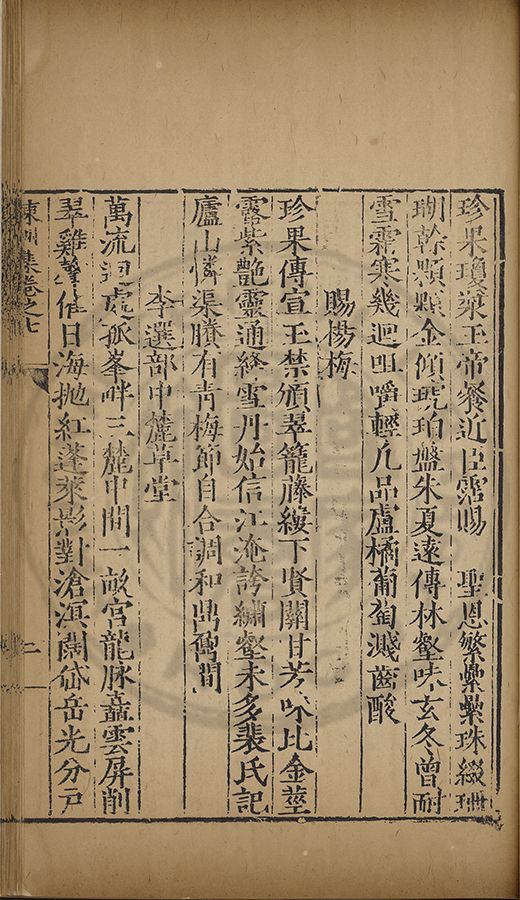 珍果瓊漿玉帝餐近臣霑賜　聖恩繁纍纍珠綴珊
瑚幹顆顆金傾琥珀盤朱夏遠傳林壑味玄冬曾耐
雪霜寒幾迴咀嚼輕凡品盧橘葡萄濺齒酸
賜楊梅
珍果傳宣玉禁頒翠籠藤縷下賢關甘芳味比金莖
露紫艷靈通絳雪丹始信江淹誇繡壑未多裴氏記
廬山憐渠賸有青梅節自合調和鼎鼐間
李選部中麓草堂
萬流迴處孤峯畔三麓中間一畝宮龍脉矗雲屏削
翠雞聲催日海拋紅蓬萊影對滄溟闊岱岳光分戶
集卷之七
二